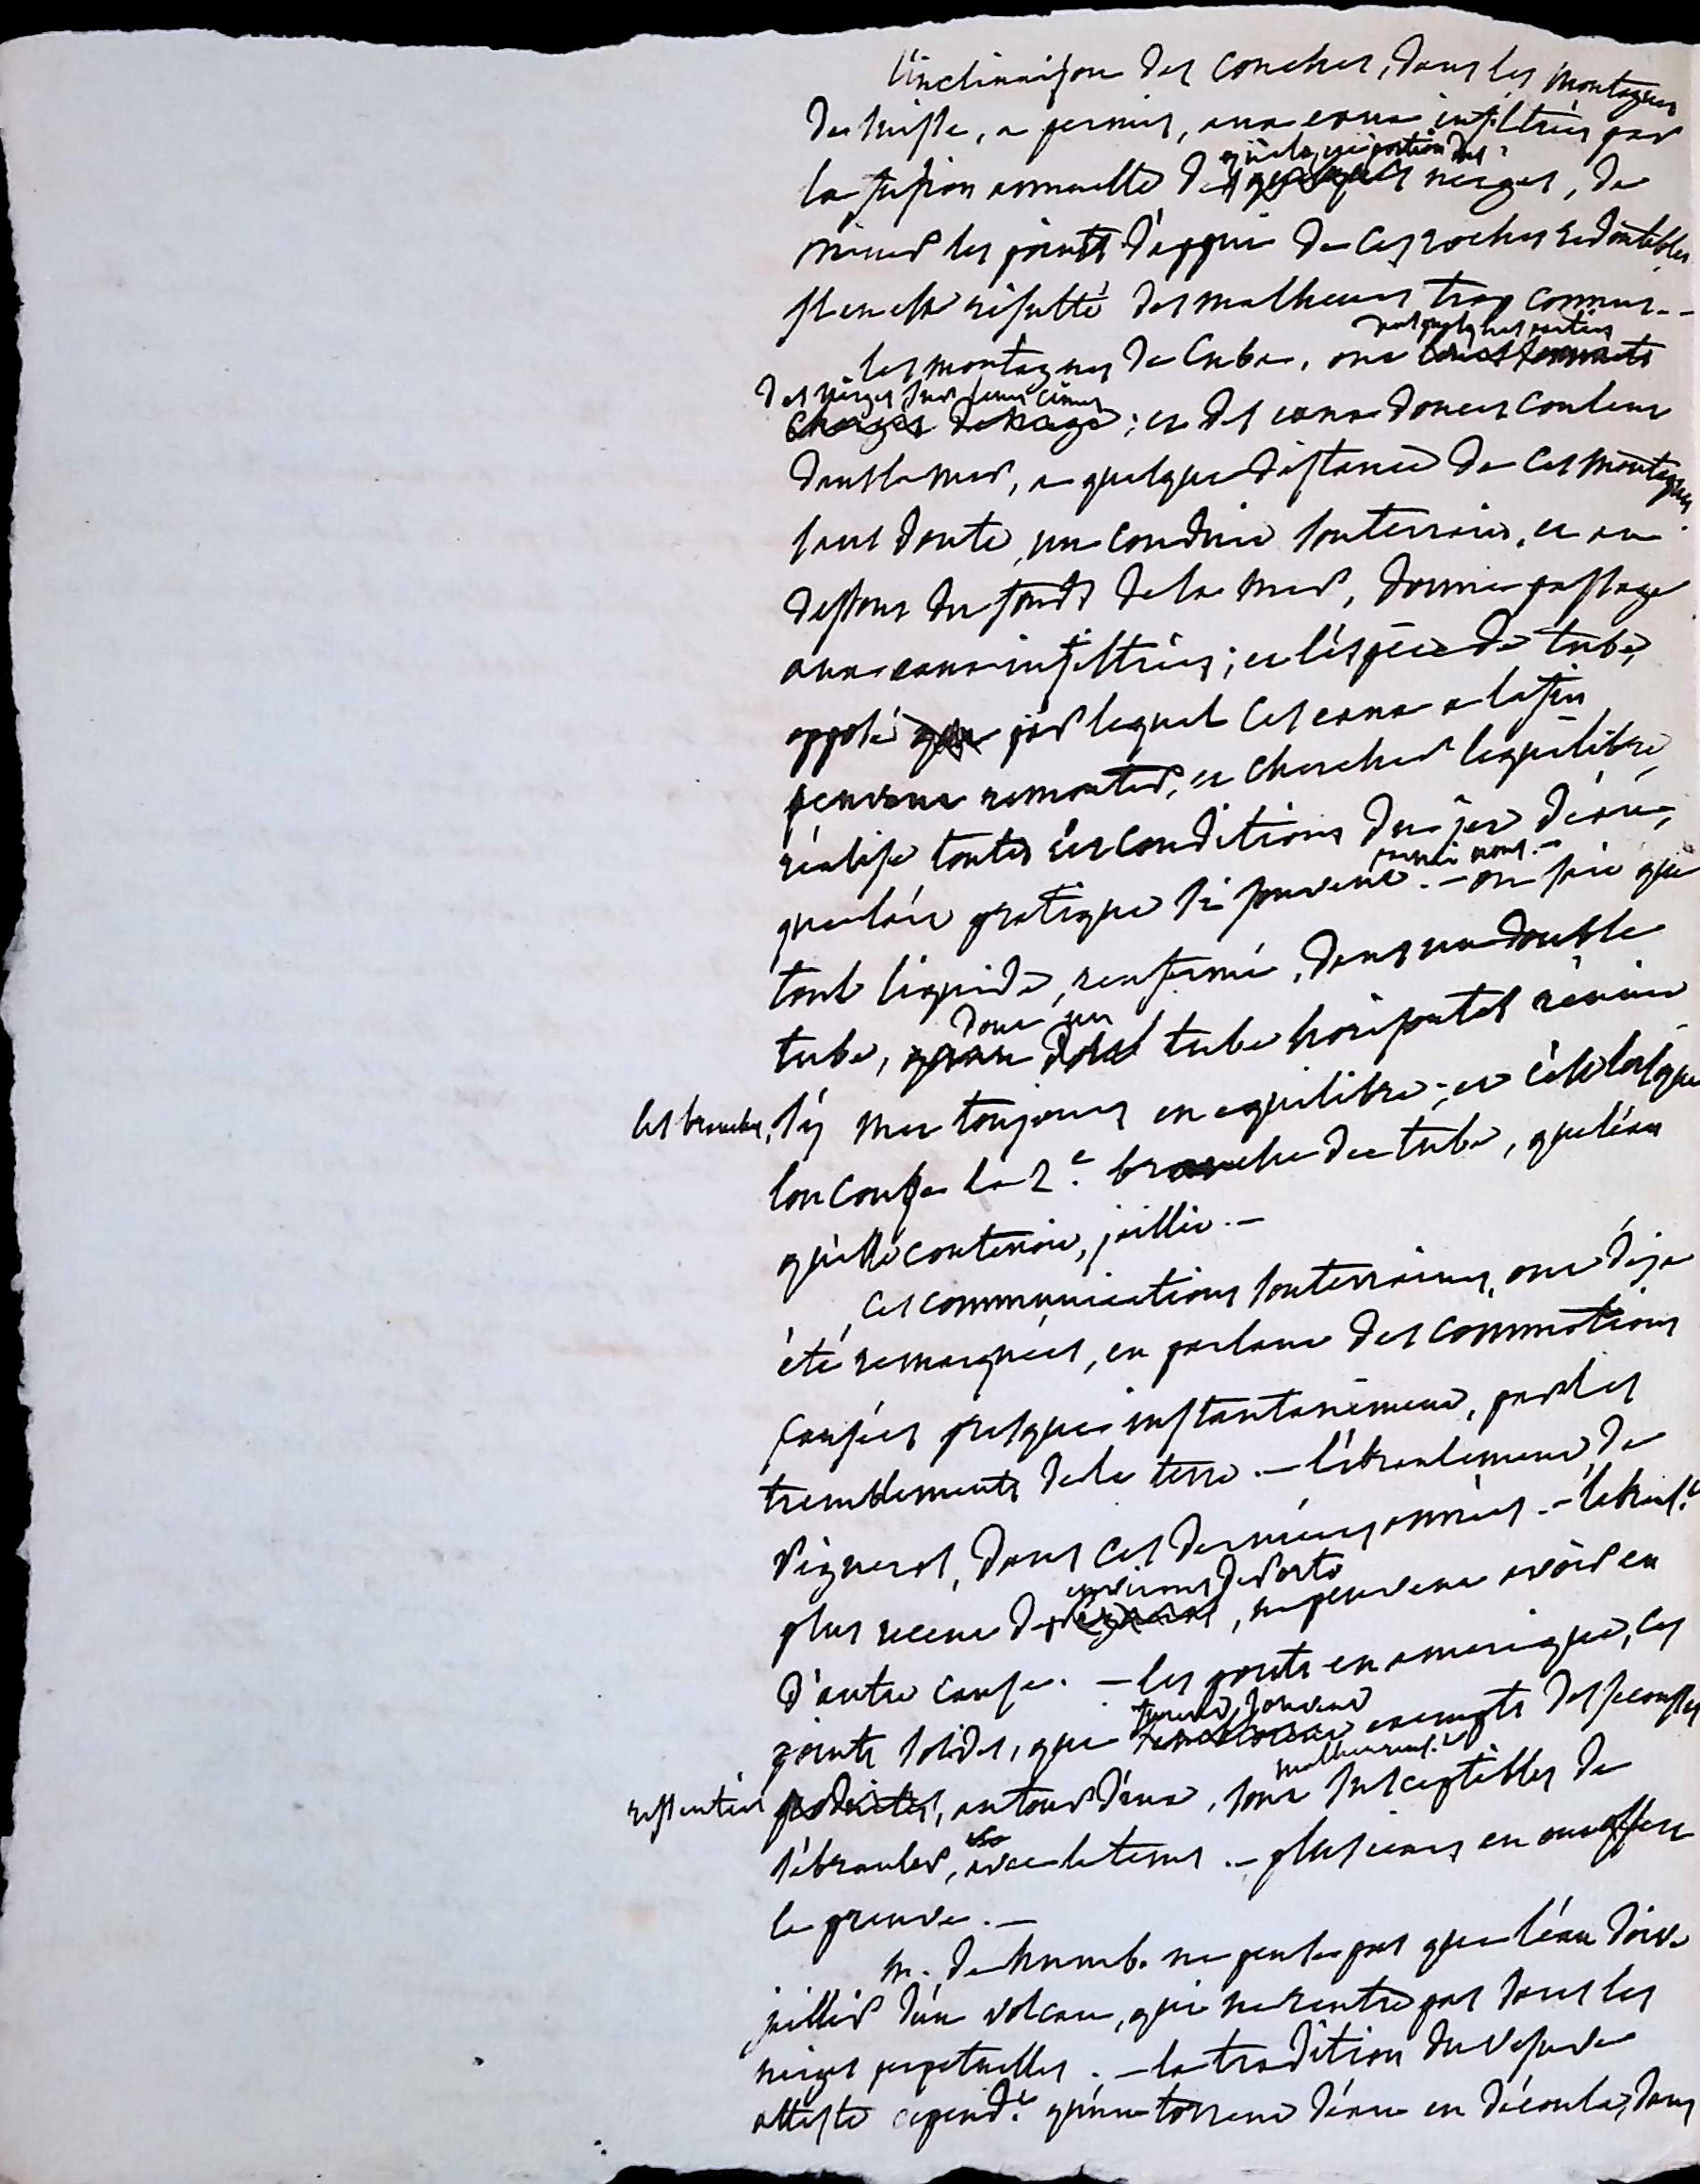 l'inclinaison des couches, dans les montagnes
de Suisse, a permis, aux eaux infiltrées par
quelque portion des
la fusion annuelle des neiges, de
miner les points d'appui de ces roches redoutables
il en est résulté des malheurs trop connus. -
dans quelques parties
les montagnes de Cuba, ont
des neiges sur leurs cimes
chargés de neige; et des eaux douces coulent
dans la mer, a quelque distance de ces montagnes
sans doute, un conduit souterrain, et au
dessous du fond de la mer, donne passage
aux eaux infiltrées; et l'éspèce de tube,
opposé par lequel ces eaux a la fin
peuvent remonter, et chercher l'equilibre,
réalise toutes les conditions du jet d'eau,
parmi nous. -
que l'art pratique si souvent. - on sait que
tout liquide, renfermé, dans un double
dont un
tube, tube horisontal réunit
les branches, s'y met toujours en equilibre; et c'est lorsque
l'on coupe la 2.e branche du tube, que l'eau
qu'elle contenoit, jaillit. -
ces communications souterraines, ont déja
été remarquées, en parlant des commotions
causées presque instantanément, par les
tremblements de la terre. - l'ébranlement, de
Pignerol, dans ces dernieres années. - l'ebranl.t
environs de Porto
plus recent de, ne peuvent avoir eu
d'autre cause. - les ponts en amerique, ces
furent, souvent
points solides, que exempts des secousses
malheureus.t
ressenties autour d'eux, sont susceptibles de
s'ébranler, avec le tems. - plusieurs en ont offert
la preuve. -
m. de humb. ne pense pas que l'eau doive
jaillir d'un volcan, qui ne rentre pas dans les
neiges perpetuelles. - la tradition du Vesuve
atteste cepend.t qu'un torrent d'eau en découla, dans